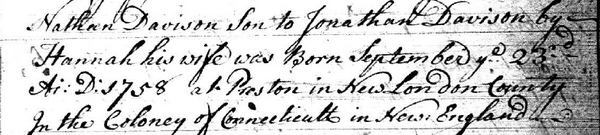 Nathan Davison Son to Jonathan Davison by
Hannah his wife was Born September yᵉ 23:ᵈ
A: D: 1758 at Preston in New London County
In the Coloney of Connecticutt in New: England